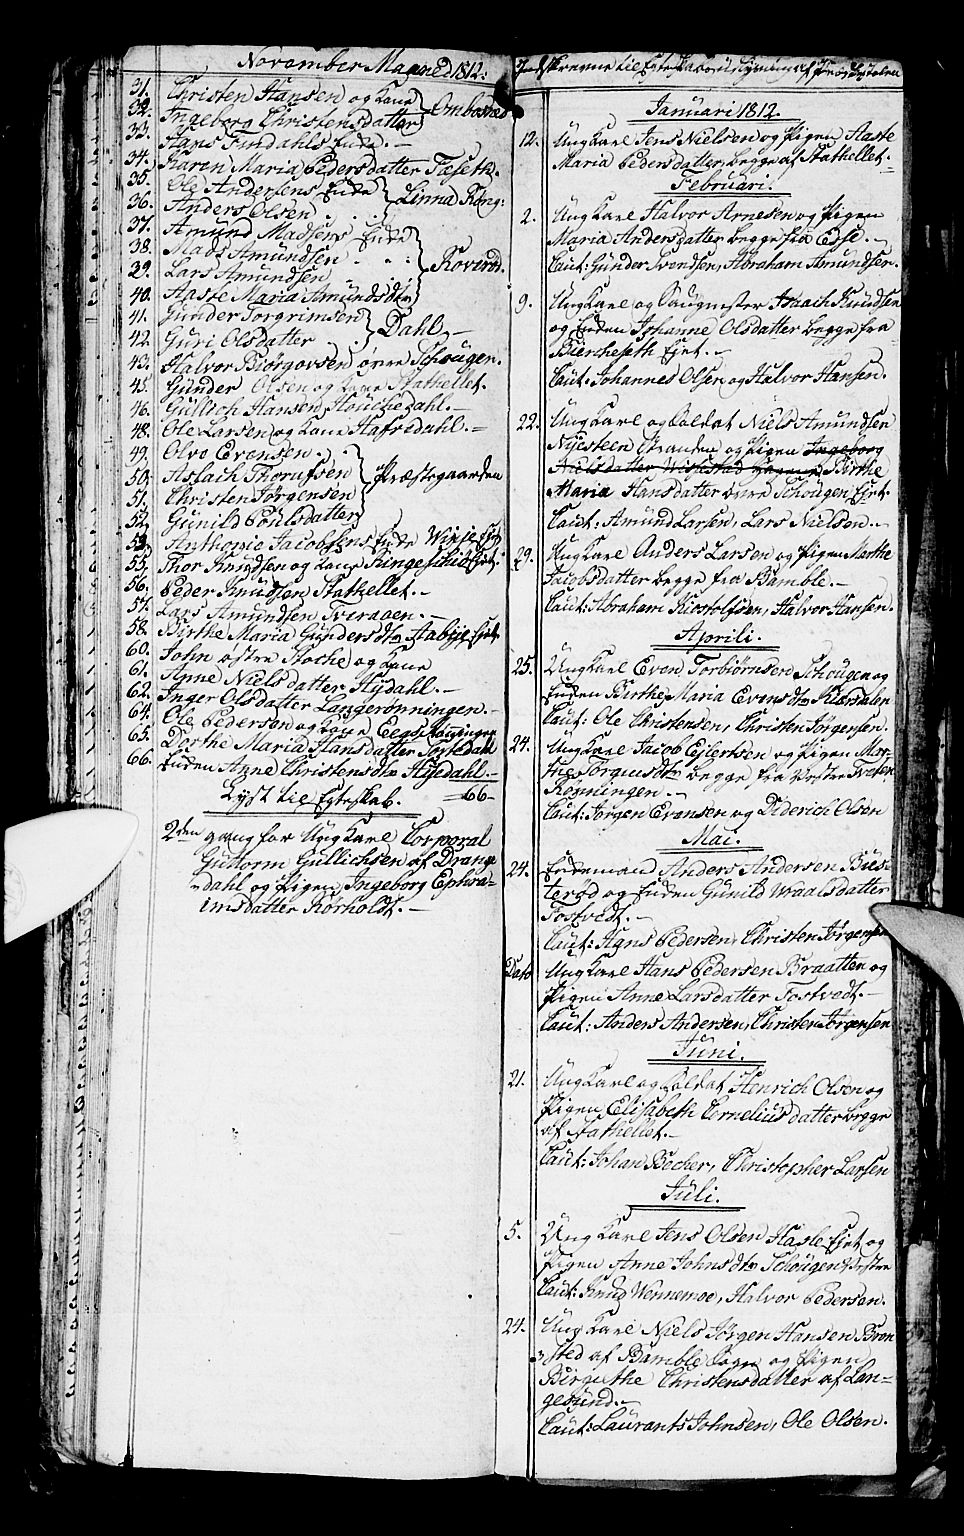 November Maaned 1812.
31. Christen Hansen og Kone
32. Ingeborg Christensdatter } Ombosnæs
33. Hans Findahls Enke. -
34. Karen Maria Pedersdatter Faseth.
35. Ole Andersens Enke
36. Anders Olsen } Linna Kong:
37. Amund Madsens Enke
38. Mads Amundsen
29. Lars Amundsen } Roverod.
40. Aaste Maria Amundsdtr
41. Gunder Torgrimsen
42. Guri Olsdatter } Dahl. -
43. Halvor Biörgovsen övre Schougen.
45. Gunder Olsen og Kone Stathellet.
46. Gullich Hansen Houchedahl. -
48. Ole Larsen og Kone Hafredahl. -
49. Olvo Evensen
50. Aslach Thorufsen } Præstegaarden
51. Christen Jörgensen
52. Gunild Poulsdatter
53. Anthonie Jacobsens Enke Vinje Eje
55. Thor Knudsen og Kone Ringesthio Eiet.
56. Peder Knudsen Stathellet. -
57. Lars Amundsen Tveraaen. -
58. Birthe Maria Gundersdtr Aabÿe Eiet.
60. John östre Stoche og Kone
61. Anne Nielsdatter Hydahl. -
62. Inger Olsdatter Langerönningen. -
64. Ole Pedersen og Kone
65. Dorthe Maria Hansdatter Tostedahl
66. Enken Anne Christensdtr Hyedahl. -
Lyst til Egteskab. -66-
2den gang for Ung Karl Corporal
Guttorm Gullichsen af Drange
-dahl og Pigen Ingeborg Ephra-
imsdatter Rörholdt. -
Indskrevne til Egteskabs
Januari 1812.
12. Ung Karl Jens Nielsen og Pigen Aaste
Maria Pedersdatter begge af Stathellet.
Februari.
2. Ung Karl Halvor Arnesen og Pigen
Maria Andersdatter begge fra Esse. -
Caut: Gunder Svendsen, Abraham Amundsen.
9. Ung Karl og Saugmester Isaach Knudsen
og Enken Johanne Olsdatter begge fra
Biercheseth Ejet. -
Caut: Johannes Olsen og Halvor Hansen.
22. Ung Karl og Soldat Niels Amundsen
Nyesteen Stranden og Pigen Ingeborg
Nielsdatter Birthe
Maria Hansdatter övre Schougen Ejet.
Caut: Amund Larsen, Lars Nielsen. -
29. Ung Karl Anders Larsen og Pigen Marthe
Jacobsdatter begge fra Bamble. -
Caut: Abraham Kiostolfsen, Halvor Hansen.
Aprili.
25. Ung Karl Even Torbiörnsen Schougen og
Enken Birthe Maria Evensdtr Pidersdalen
Caut: Ole Christensen, Christen Jörgensen.
24. Ung Karl Jacob Ejlertsen og Pigen Mar-
the Jörgensdtr begge fra Vestre Tveten
Rönningen. -
Caut: Jörgen Evensen og Diderich Olsen
Mai.
24. Enkemand Anders Andersen Bies-
teröd og Enken Gunild Wraalsdatter
Fostvedt. -
Caut: Hans Pedersen, Christen Jörgensen
Dato Ung Karl Hans Pedersen Braatten og
Pigen Anne Larsdatter Fostvedt. -
Caut: Anders Andersen, Christen Jörgensen
Juni.
21. Ung Karl og Soldat Henrich Olsen og
Pigen Elisabeth Corneliusdatter begge
af Stathellet. -
Caut: Johan Becher, Christopher Larsen
Juli.
5. Ung Karl Jens Olsen Hasle Ejet og
Pigen Anne Johnsdtr Schougen Vestre
Caut: Knud Wennemoe, Halvor Pedersen.
24. Ung Karl Niels Jörgen Hansen Bron
-sted af Bamble Sogn og Pigen
Birguthe Christensdatter af Lan-
gesund. -
Caut: Laurants Johnsen, Ole Olsen.